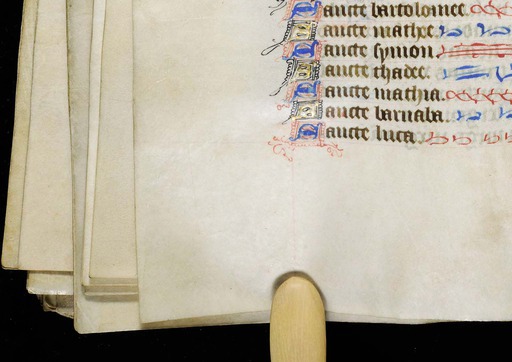 Sancte bartolomee
Sancte mathee
Sancte symon
Sancte thadee
Sancte mathia
Sancte barnaba
Sancte luca